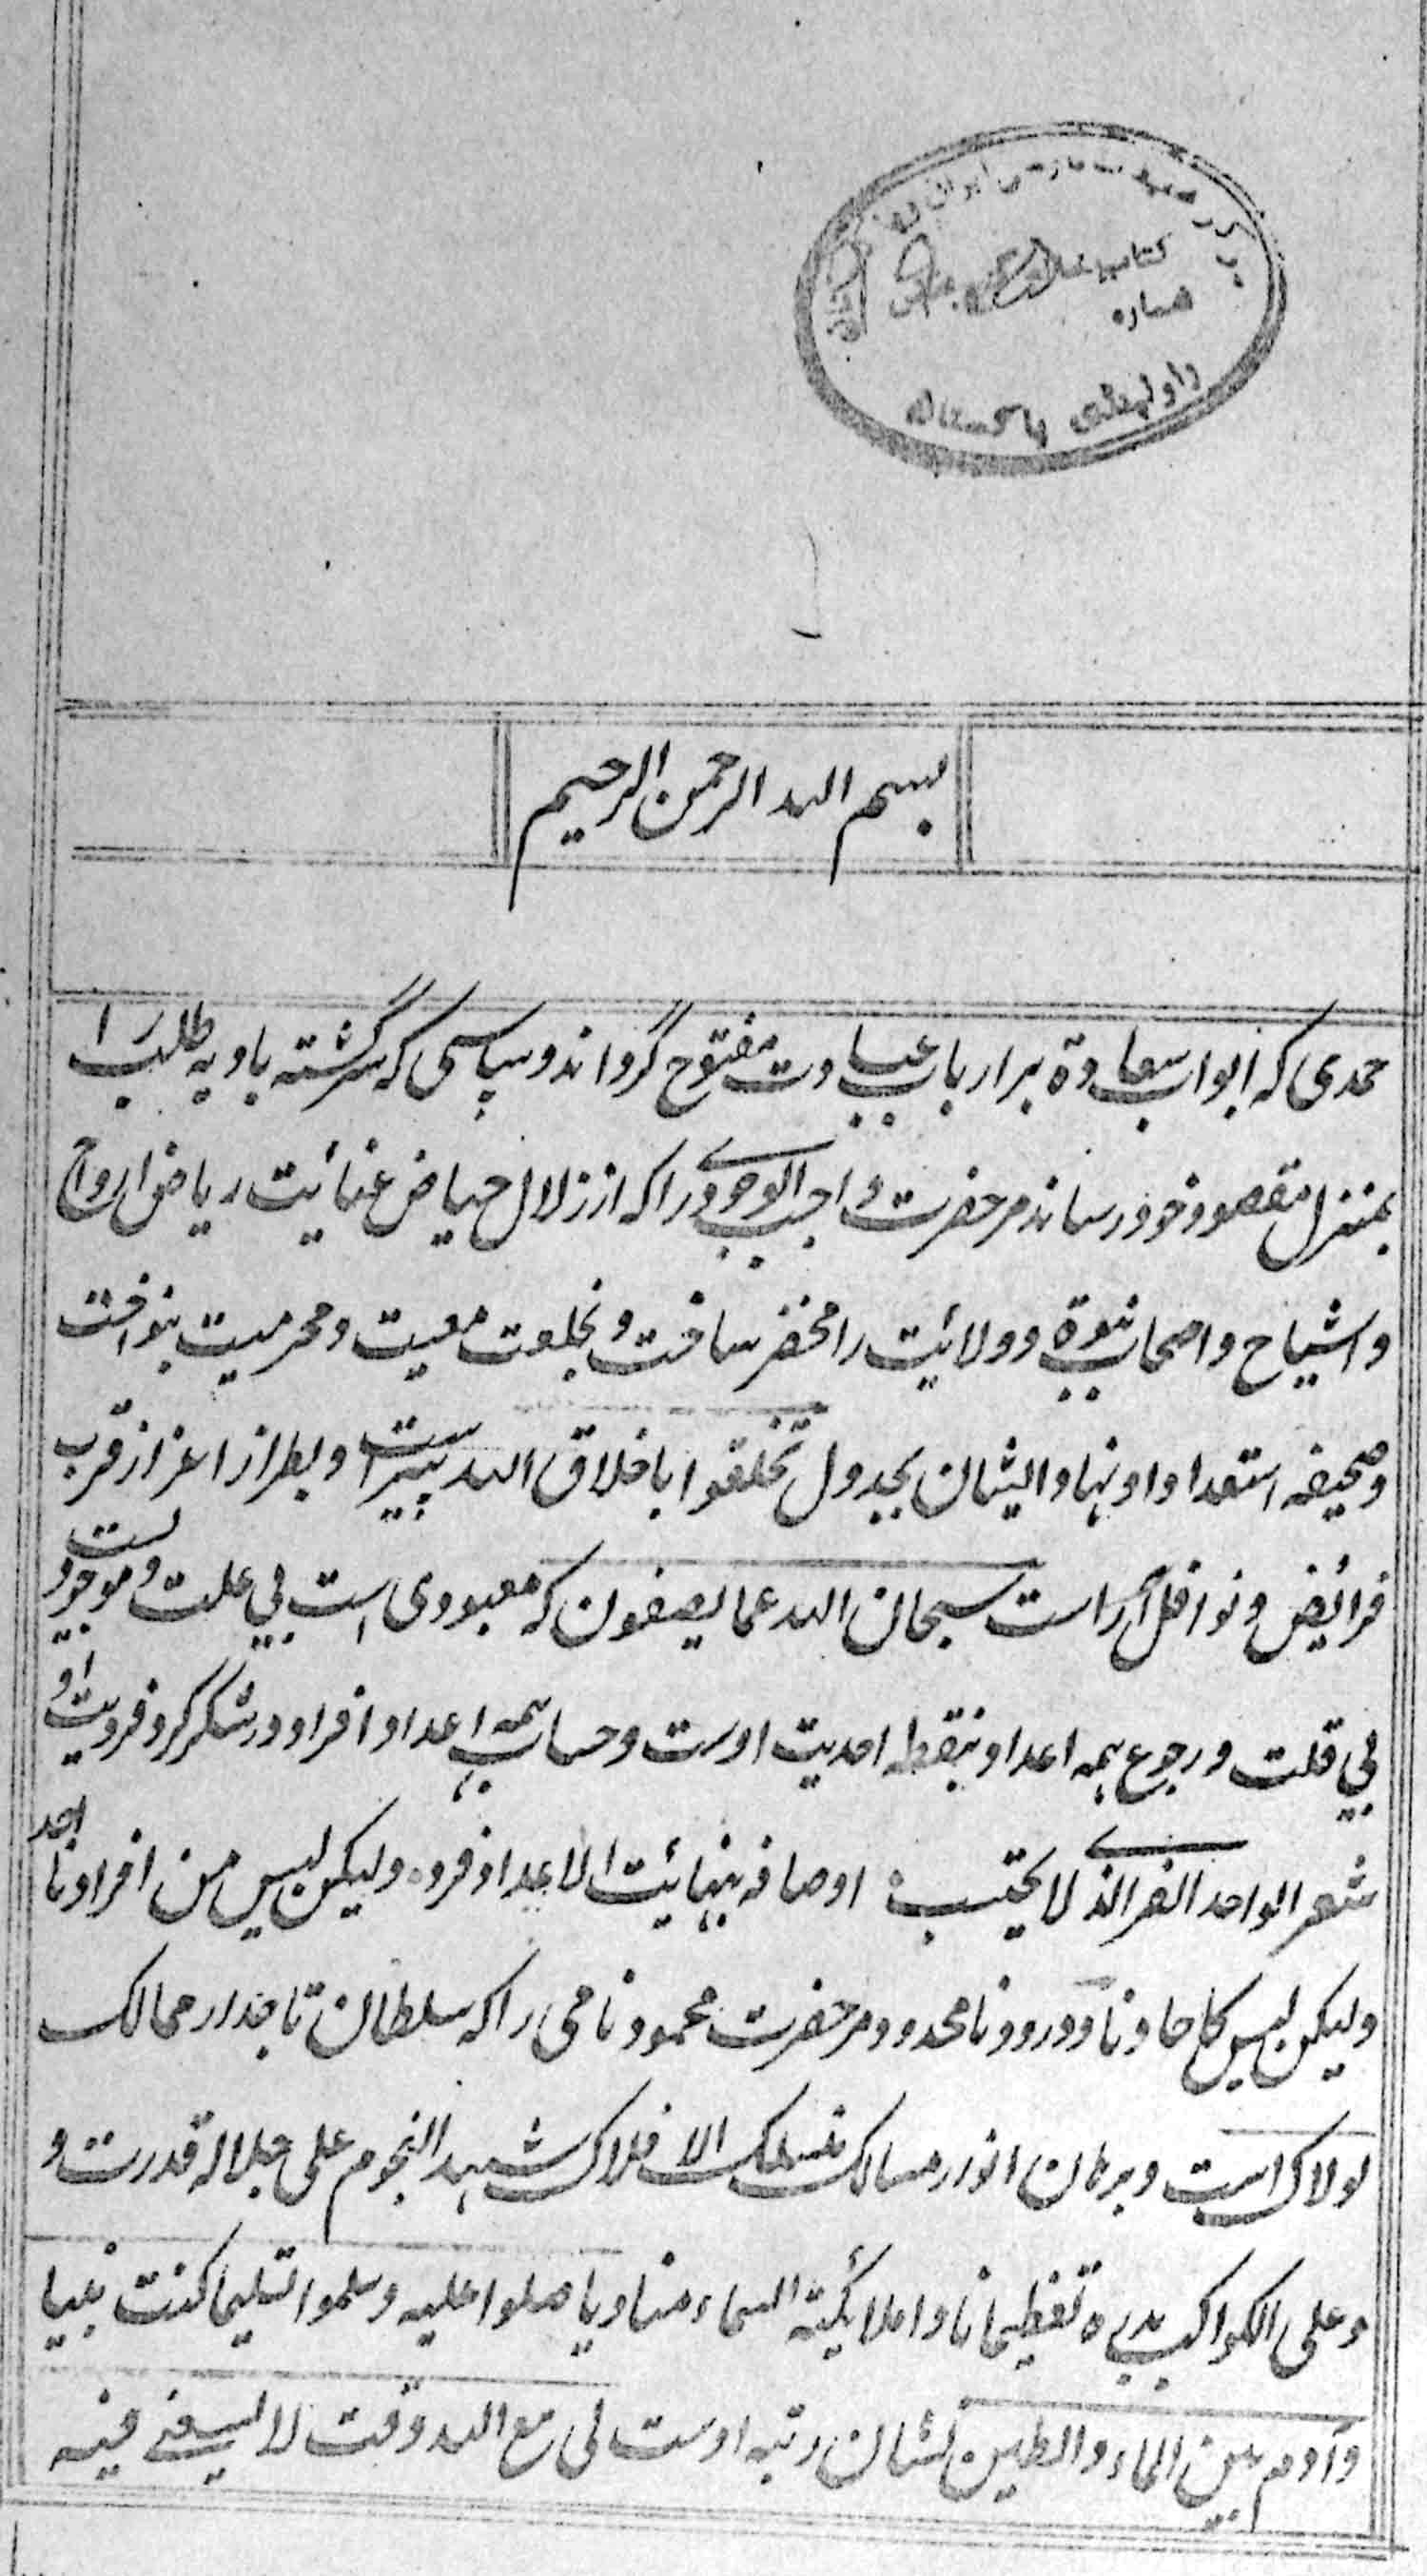 مرکز تحقیقات فارسی ایران و پاکستان
کتابخانه گنج بخش
شماره
راولپندی پاکستان
بسم الله الرحمن الرحیم
حمدی که ابواب سعادة بر ارباب عبادت مفتوح گرداند و سپاسی که سرگشته بادیه طلب را
بمنزل مقصود خود رساند مر حضرت واجب الوجودی را که از زلال حیاض عنائیت ریاض ارواح
و اشباح و اصحاب نبوة و ولائیت را مخضر ساخت و بخلعت معیت و محرمیت بنواخت
و صحیفه استعداد و نهاد ایشان بجدول تخلقوا باخلاق الله پیراست و بطراز اعزاز قرب
فرائض و نوافل آراست سبحان الله عما یصفون که معبودی است بی علت و موجودیست
بی قلت و رجوع همه اعداد بنقطه احدیت اوست و حساب همه اعداد و افراد در شکر کرد فردیت او
شعر الواحد الفرد الذی لا یحتسب اوصافه بنهائیت الاعداد فرد ولیکن لیس من افرادنا احد
ولیکن لیس کاحادنا و درود نامحدود مر حضرت محمود نامی را که سلطان تاجدار ممالک
لولاک است و برهان انوار مسالک نفسلک الافلاک شهد النجوم علی جلاله قدرت و
و علی الکواکب بدره تعظیما نادا ملائیکته السماء منادیا صلوا علیه و سلموا تسلیما کنت نبیا
و آدم بین الماء والطین نشان رتبه اوست لی مع الله وقت لا یسعنی فیه